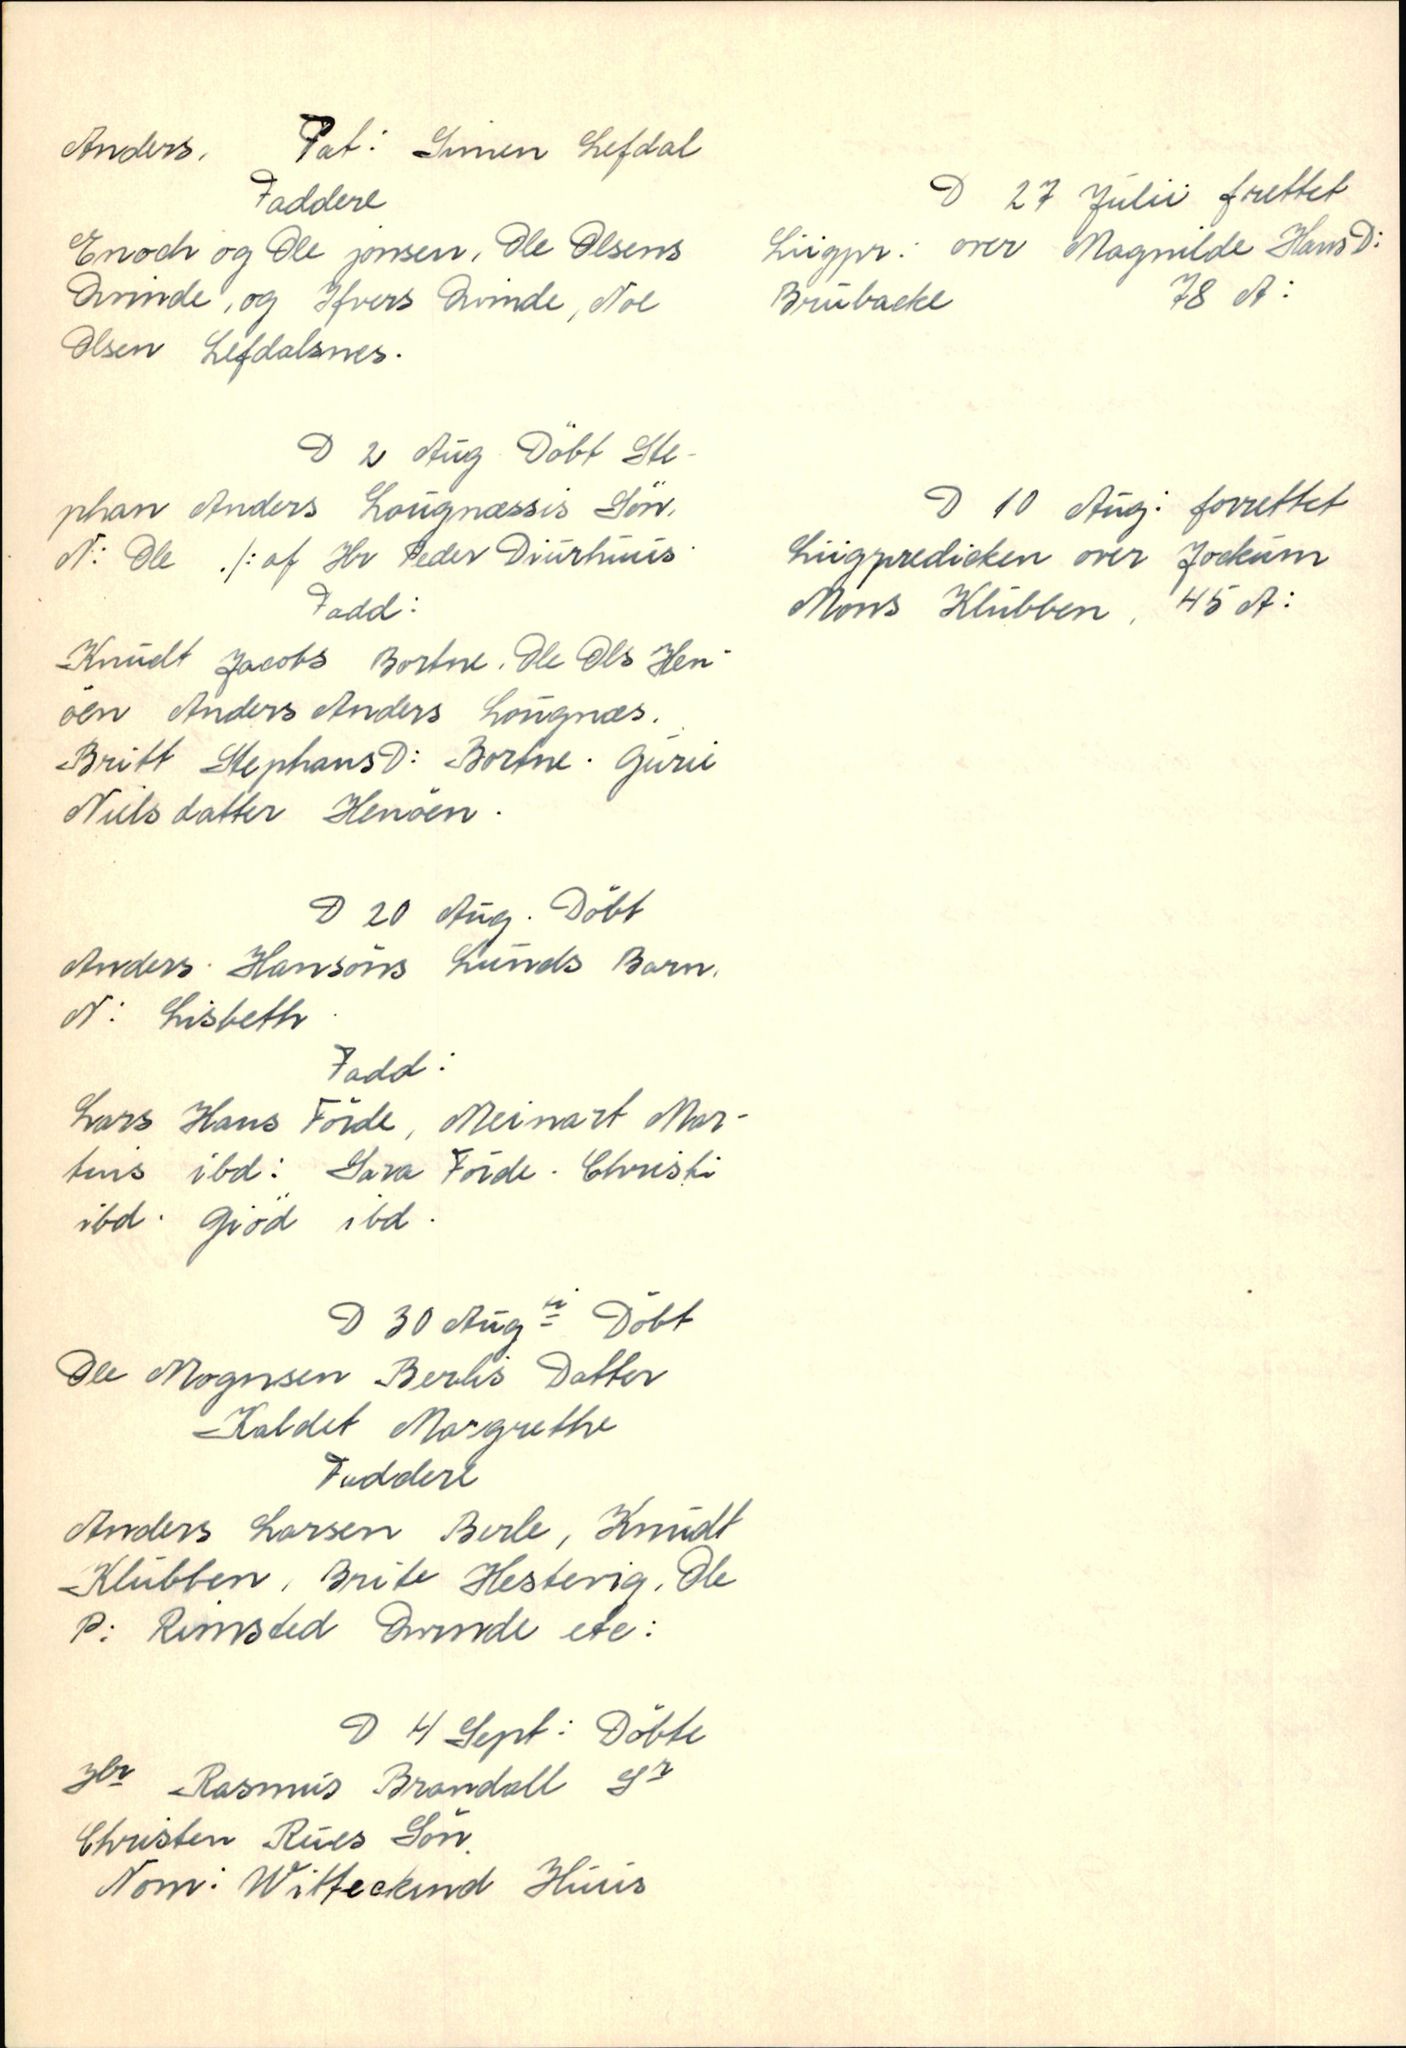 Anders. Pat: Simen Lefdal
Faddere
Enoch og Ole jonsen, Ole Olsens
Qvinde, og Ifvers Qvinde, Noe
Olsen Lefdalsnes.
D 2 Aug Döbt Ste-
phan Anders Lougnæssis Sön.
N: Ole ./: af Hr Peder Diurhuus
Fadd:
Knudt Jacobs Bortne. Ole Ols Hen-
öen Anders Anders Lougnæs.
Britt StephansD: Bortne. Gurie
Nielsdatter Henöen.
D 20 Aug. Döbt
Anders Hansöns Lunds Barn.
N: Lisbeth
Fadd:
Lars Hans Förde, Meinart Mar-
tinis ibd: Sara Förde. Christi
ibd. Giöd ibd.
D 30 Aug ti Döbt
Ole Mognsen Berlis Datter
Kaldet Margrethe
Faddere
Anders Larsen Berle, Knudt
Klubben, Brite Hestevig, Ole
P: Rimsted Qvinde etc:
D 4 Sept: Döbte
Hr Rasmus Brandall Sr
Christen Rues Sön.
Nom: Witteckind Huus
D 27 Julii frettet
Liigpr: over Magnilde HansD:
Brubacke 78 A:
D 10 Aug: forrettet
Liigpredicken over Jockum
Mons Klubben, 45 A: